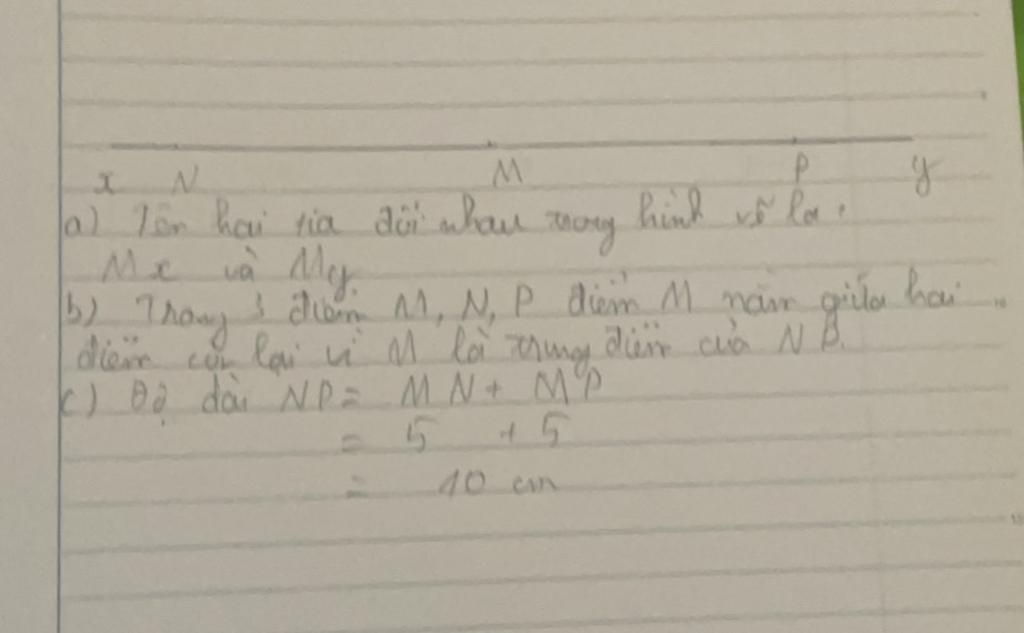 x N M P y
a) Tên hai tia đối nhau trong hình vẽ là:
Mx và My.
b) Trong 3 điểm M, N, P điểm M nằm giữa hai
điểm còn lại vì M là trung điểm của NP.
c) Độ dài NP = MN + MP
= 5 + 5
= 10 cm